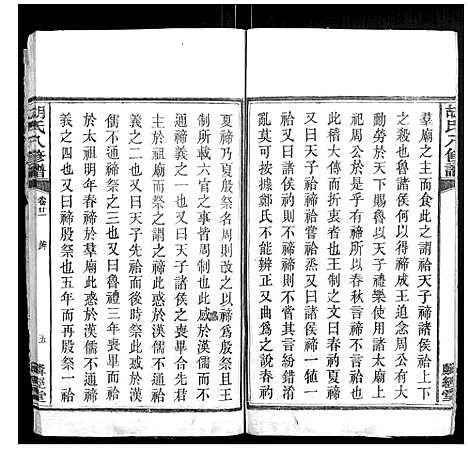 胡氏八修譜
麟經堂
羣廟之主而食此之謂祫天子禘諸侯祫上下
之殺也魯諸侯何以禘成王追念周公有大
勳勞於天下賜魯以天子禮樂使用諸太廟上
祀周公於是乎有禘所以春秋言禘不言祫也
此稽大傳而折衷者也王制之文曰春礿夏禘
又曰諸侯礿則不禘禘則不嘗祫烝又曰諸侯礿犆禘一犆一
祫嘗祫烝祫又曰諸侯禘一犆一
祫其言紛錯淆
亂莫可按據鄭氏不能辨正又曲為之說春礿
夏禘乃夏殷祭名周則改之以禘為殷祭且王
制所載六官之事皆周制也此惑於漢儒而不
通禘義之一也又曰天子諸侯之喪畢合先君
主於祖廟而祭之謂之祫此惑於漢
儒不通禘祭之二也又曰魯禮三年喪畢而祫
於太祖明年春禘於羣廟此惑於漢儒不通禘
義之四也又曰禘殷祭也五年而再殷祭一祫
胡氏八修譜
卷廿一
辨
五
麟經堂